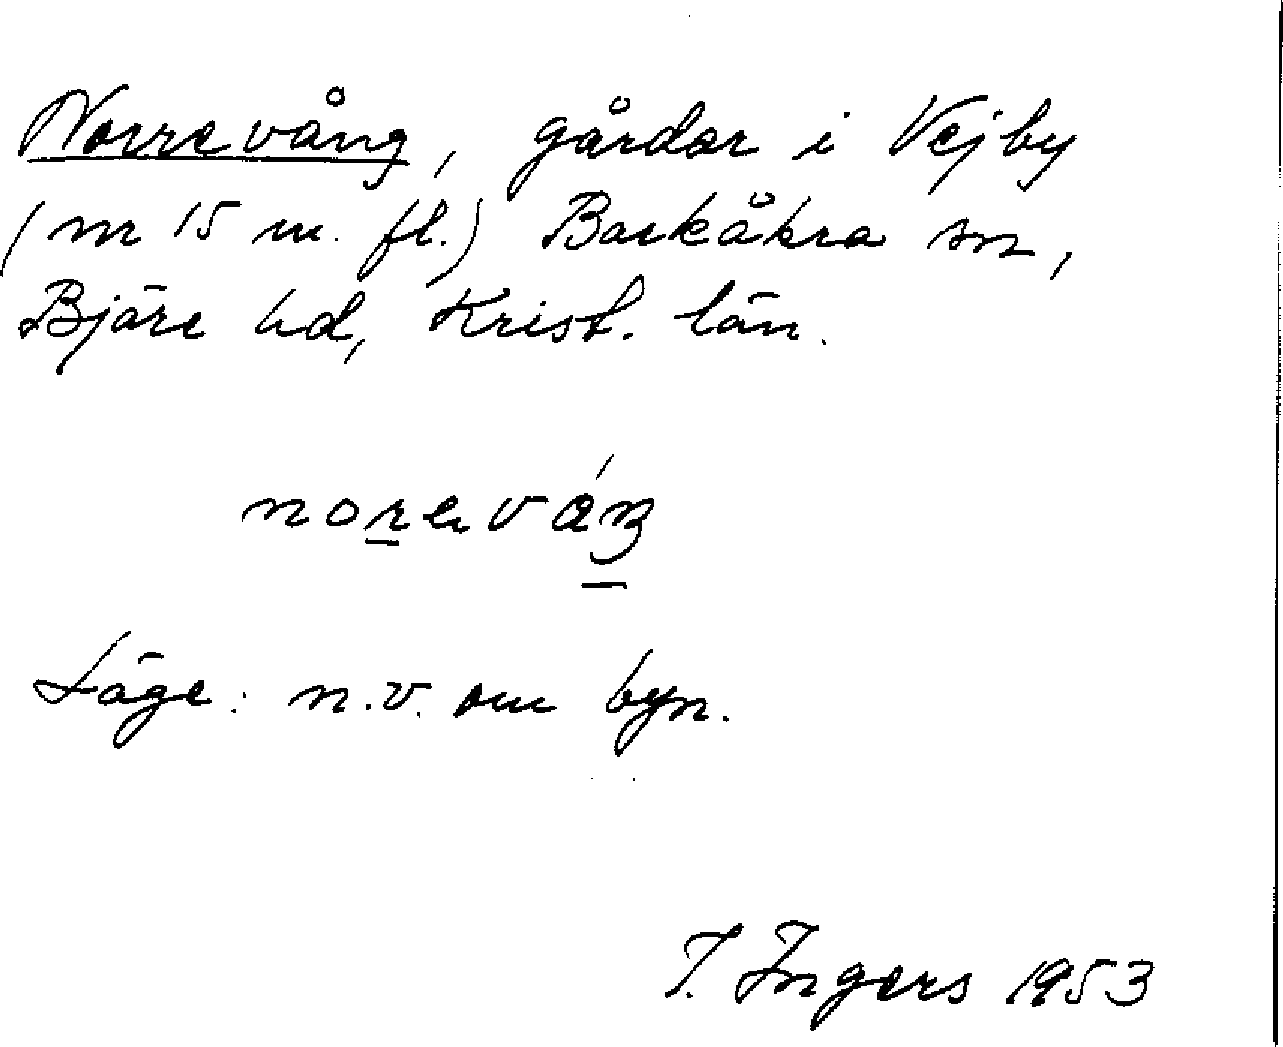 Norrevång, gårdar i Vejby
(nr 15 m. fl.) Barkåkra sn,
Bjäre hd, Krist. län.
noreváŋ
Läge: n.v. om byn.
I. Ingers 1953